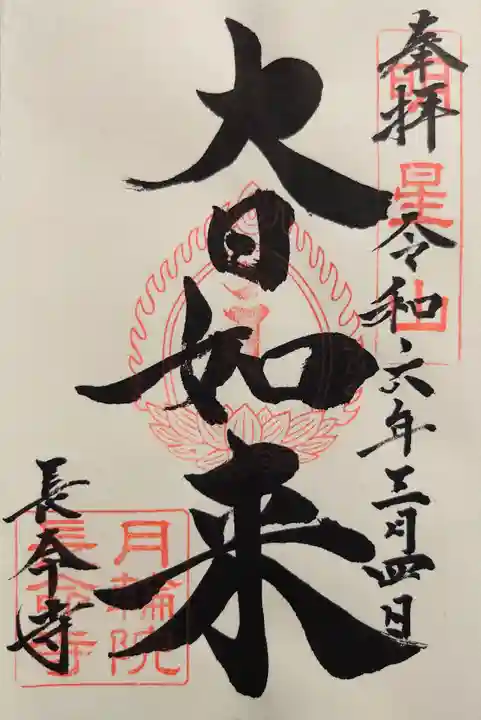 奉拝
令和六年三月四日
明星山
大日如来
長命寺
月輪院
長命寺